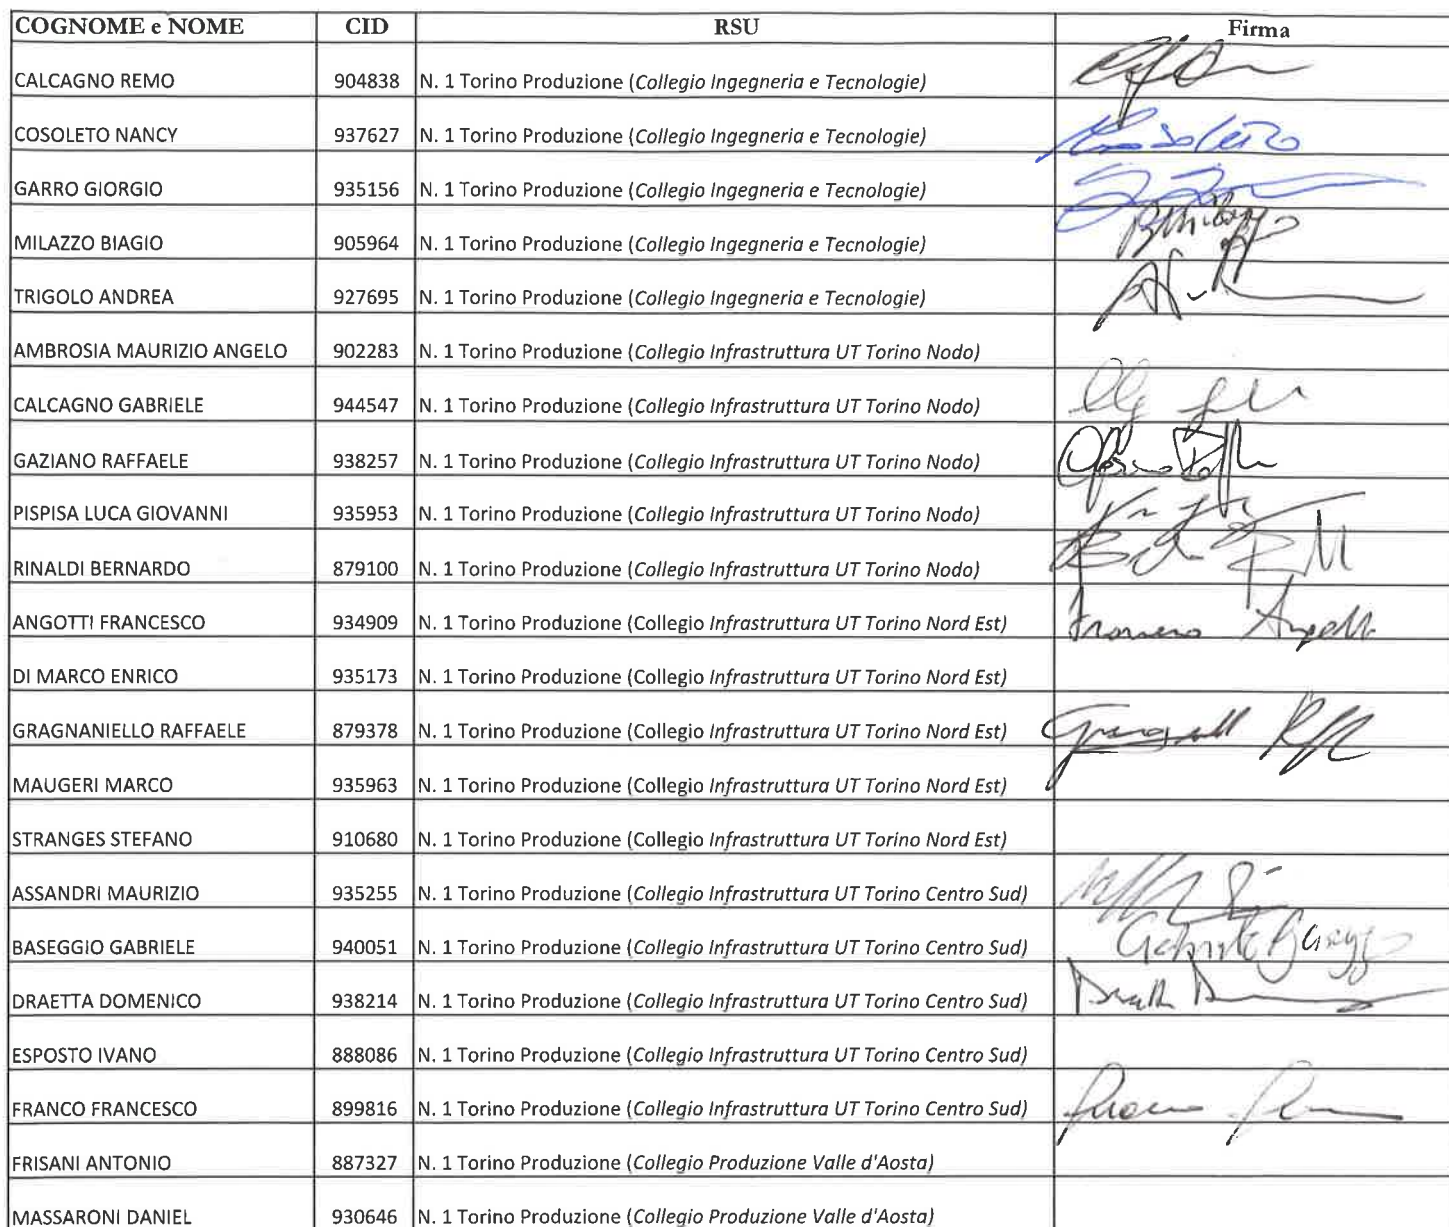 COGNOME e NOME CID RSU Firma
CALCAGNO REMO 904838 N. 1 Torino Produzione (Collegio Ingegneria e Tecnologie)
COSOLETO NANCY 937627 N. 1 Torino Produzione (Collegio Ingegneria e Tecnologie)
GARRO GIORGIO 935156 N. 1 Torino Produzione (Collegio Ingegneria e Tecnologie)
MILAZZO BIAGIO 905964 N. 1 Torino Produzione (Collegio Ingegneria e Tecnologie)
TRIGOLO ANDREA 927695 N. 1 Torino Produzione (Collegio Ingegneria e Tecnologie)
AMBROSIA MAURIZIO ANGELO 902283 N. 1 Torino Produzione (Collegio Infrastruttura UT Torino Nodo)
CALCAGNO GABRIELE 944547 N. 1 Torino Produzione (Collegio Infrastruttura UT Torino Nodo)
GAZIANO RAFFAELE 938257 N. 1 Torino Produzione (Collegio Infrastruttura UT Torino Nodo)
PISPISA LUCA GIOVANNI 935953 N. 1 Torino Produzione (Collegio Infrastruttura UT Torino Nodo)
RINALDI BERNARDO 879100 N. 1 Torino Produzione (Collegio Infrastruttura UT Torino Nodo)
ANGOTTI FRANCESCO 934909 N. 1 Torino Produzione (Collegio Infrastruttura UT Torino Nord Est)
DI MARCO ENRICO 935173 N. 1 Torino Produzione (Collegio Infrastruttura UT Torino Nord Est)
GRAGNANIELLO RAFFAELE 879378 N. 1 Torino Produzione (Collegio Infrastruttura UT Torino Nord Est)
MAUGERI MARCO 935963 N. 1 Torino Produzione (Collegio Infrastruttura UT Torino Nord Est)
STRANGES STEFANO 910680 N. 1 Torino Produzione (Collegio Infrastruttura UT Torino Nord Est)
ASSANDRI MAURIZIO 935255 N. 1 Torino Produzione (Collegio Infrastruttura UT Torino Centro Sud)
BASEGGIO GABRIELE 940051 N. 1 Torino Produzione (Collegio Infrastruttura UT Torino Centro Sud)
DRAETTA DOMENICO 938214 N. 1 Torino Produzione (Collegio Infrastruttura UT Torino Centro Sud)
ESPOSTO IVANO 888086 N. 1 Torino Produzione (Collegio Infrastruttura UT Torino Centro Sud)
FRANCO FRANCESCO 899816 N. 1 Torino Produzione (Collegio Infrastruttura UT Torino Centro Sud)
FRISANI ANTONIO 887327 N. 1 Torino Produzione (Collegio Produzione Valle d'Aosta)
MASSARONI DANIEL 930646 N. 1 Torino Produzione (Collegio Produzione Valle d'Aosta)